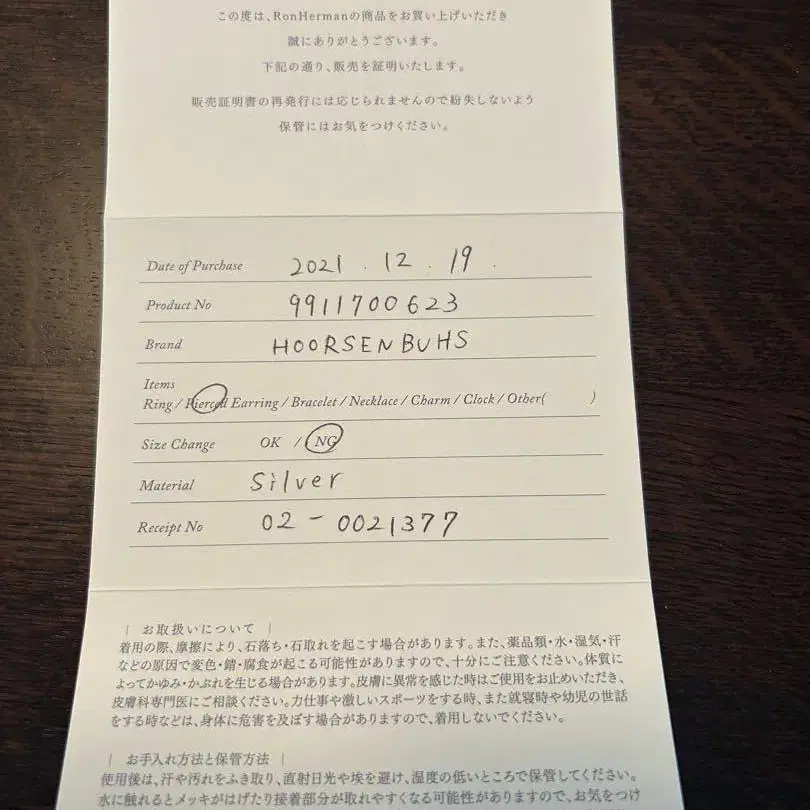 この度は、RonHermanの商品をお買い上げいただき
誠にありがとうございます。
下記の通り、販売を証明いたします。
販売証明書の再発行には応じられませんので紛失しないよう
保管にはお気をつけください。
Date of Purchase 2021 . 12 . 19 .
Product No 9911700623
Brand HOORSENBUHS
Items
Ring / Pierced Earring / Bracelet / Necklace / Charm / Clock / Other( )
Size Change OK / NG
Material Silver
Receipt No 02-0021377
| お取扱いについて |
着用の際、摩擦により、石落ち・石取れを起こす場合があります。また、薬品類・水・湿気・汗
などの原因で変色・錆・腐食が起こる可能性がありますので、十分にご注意ください。体質に
よってかゆみ・かぶれを生じる場合があります。皮膚に異常を感じた時はご使用をお止めいただき、
皮膚科専門医にご相談ください。力仕事や激しいスポーツをする時、また就寝時や幼児の世話
をする時などは、身体に危害を及ぼす場合がありますので、着用しないでください。
| お手入れ方法と保管方法 |
使用後は、汗や汚れをふき取り、直射日光や埃を避け、湿度の低いところで保管してください。
水に触れるとメッキがはげたり接着部分が取れやすくなる可能性がありますので、お気をつけ